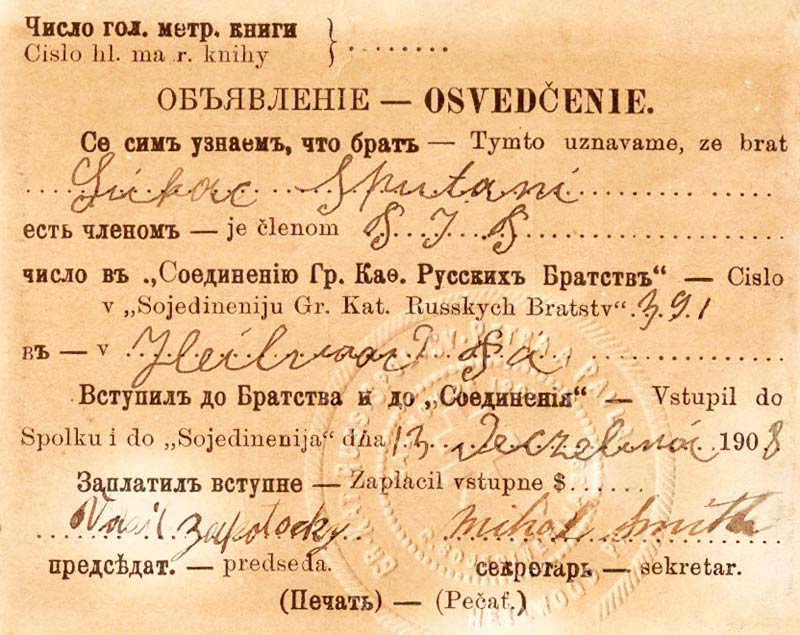 Число гол. метр. книги
Cislo hl. ma r. knihy
ОБЪЯВЛЕНІЕ — OSVEDČENIE.
Се симъ узнаемъ, что братъ — Tymto uznavame, ze brat
есть членомъ — je členom S J S
число въ „Соединенію Гр. Каѳ. Русскихъ Братствъ“ — Cislo
v „Sojedineniju Gr. Kat. Russkych Bratstv“ 391
въ — v Pa
Вступилъ до Братства и до „Соединенія“ — Vstupil do
Spolku i do „Sojedinenija“ dňa 13 1908
Заплатилъ вступне — Zaplacil vstupne $
Vasil Zapotocky Mihal Smith
предсѣдат. — predseda. секретарь — sekretar.
(Печать) — (Pečať.)